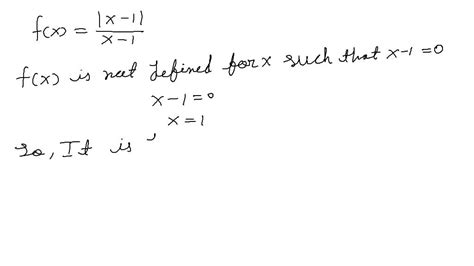 f(x) = |x-1| / x-1
f(x) is not defined for x such that x-1=0
x-1=0
x=1
So, It is